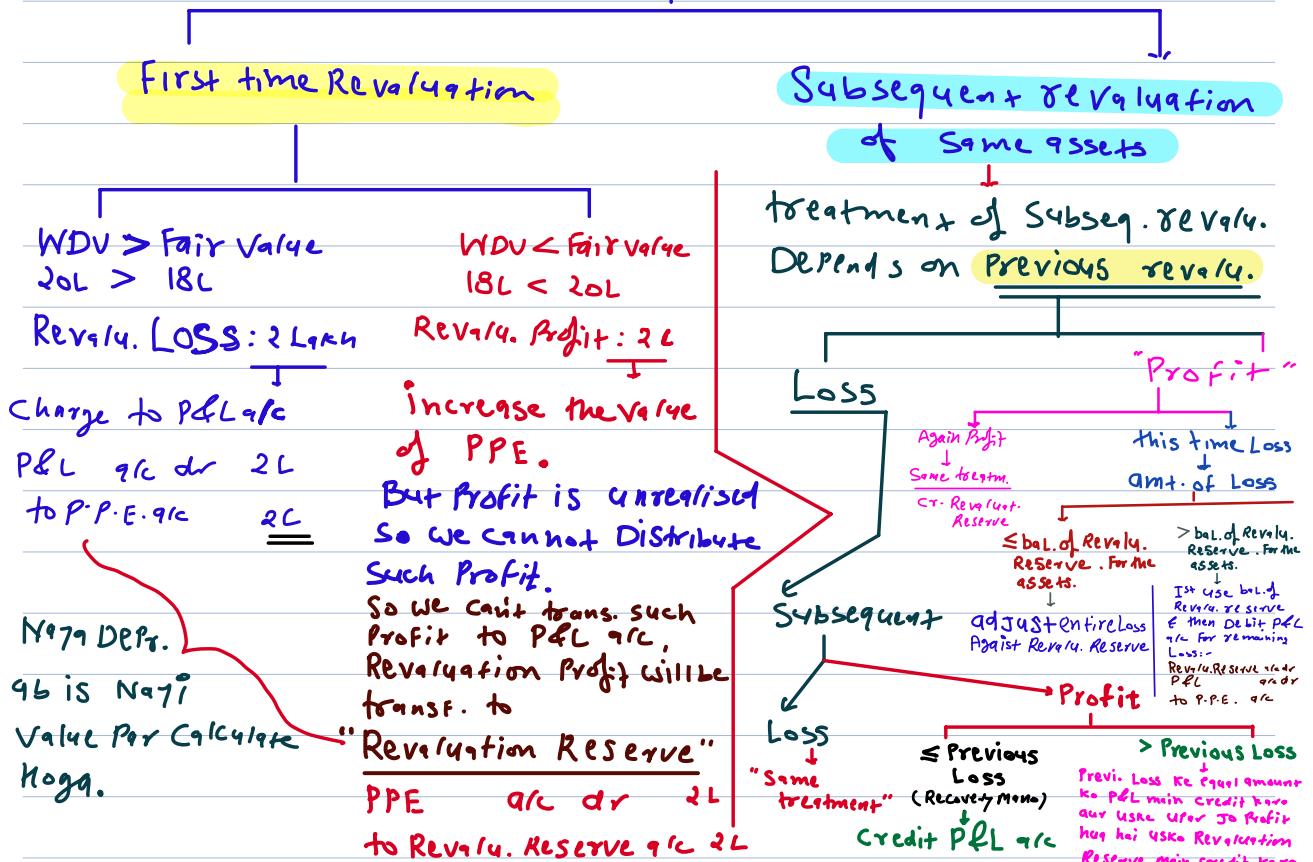 First time Revaluation
WDV > Fair Value
20L > 18L
Revalu. Loss: 2 Lakh
Charge to P&L a/c
P&L a/c dr 2L
to P.P.E. a/c 2L
Naya Depr.
ab is Nayi
Value Par Calculate
Hoga.
WDV < Fair value
18L < 20L
Revalu. Profit: 2L
increase the value
of PPE.
But Profit is unrealised
So we cannot Distribute
Such Profit.
So we can't trans. such
Profit to P&L a/c,
Revaluation Profit will be
transf. to
"Revaluation Reserve"
PPE a/c dr 2L
to Revalu. Reserve a/c 2L
Subsequent revaluation
of Same assets
treatment of Subseq. revalu.
Depends on Previous revalu.
Loss
Subsequent
Loss
"Same
treatment"
Profit
≤ Previous
Loss
(Recovery Mano)
Credit P&L a/c
> Previous Loss
Previ. Loss ke equal amount
ko P&L main credit karo
aur uske upar Jo Profit
hua hai usko Revaluation
Reserve main credit karo
"Profit"
Again Profit
Same treatm.
Cr. Revaluat.
Reserve
this time Loss
amt. of Loss
≤ bal. of Revalu.
Reserve. For the
assets.
adjust entire Loss
Agaist Revalu. Reserve
> bal. of Revalu.
Reserve. For the
assets.
Ist use bal. of
Revalu. reserve
& then Debit P&L
a/c For remaining
Loss:-
Revalu. Reserve a/c dr
P&L a/c dr
to P.P.E. a/c